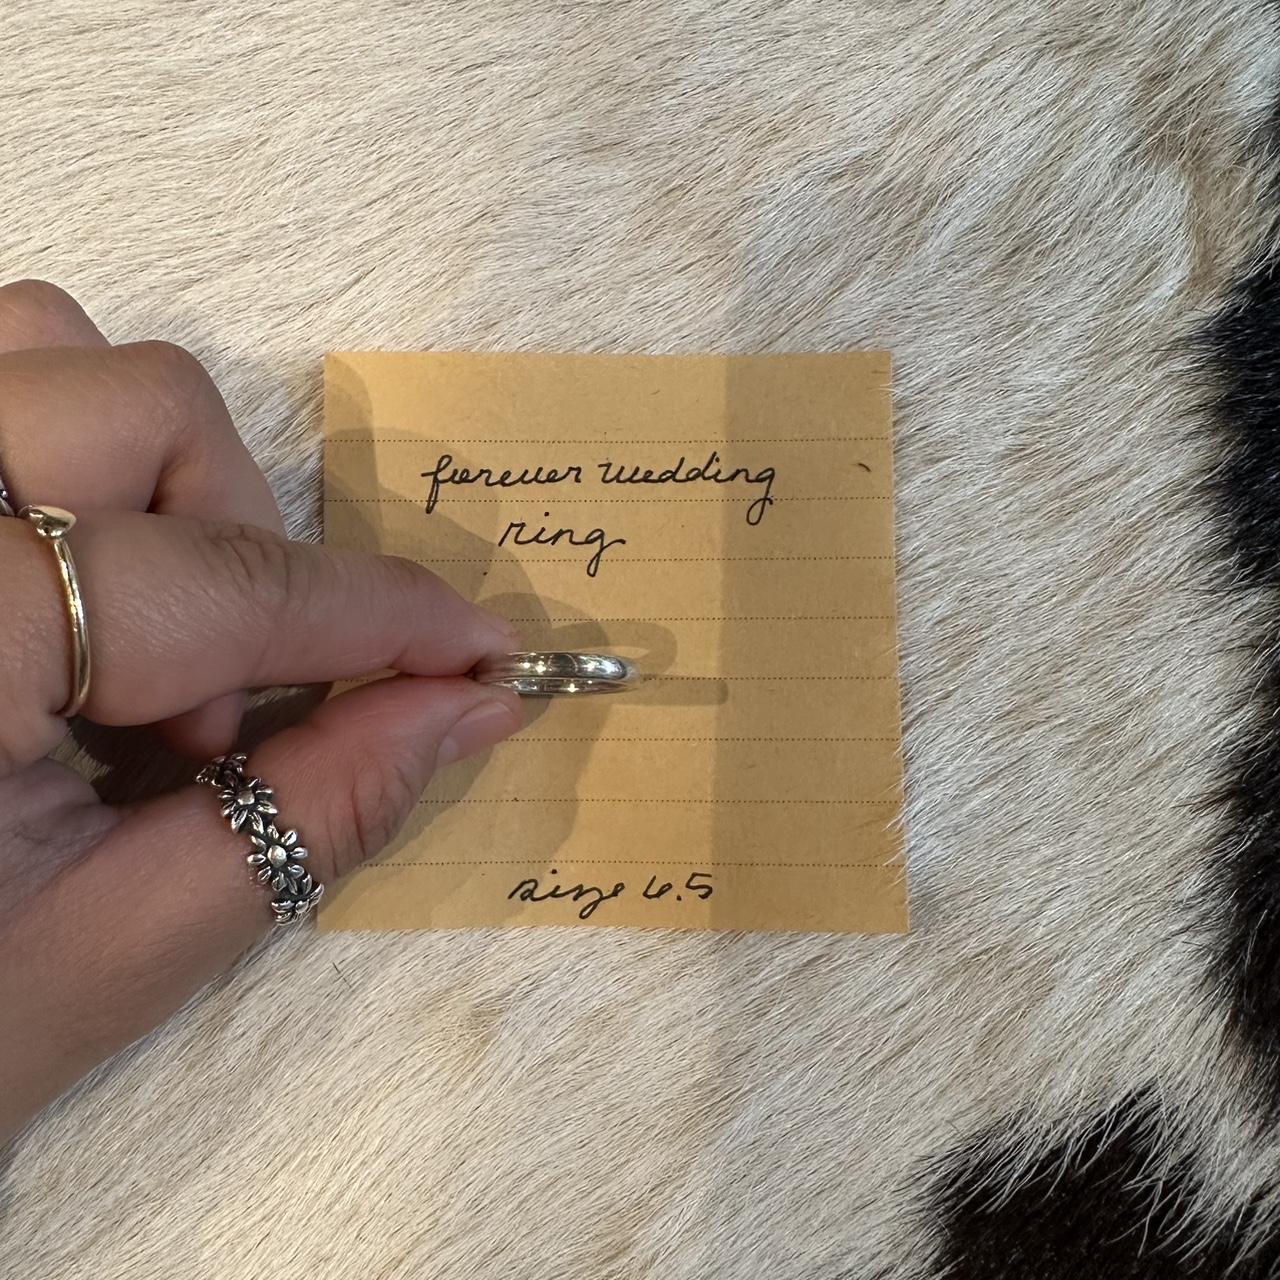 forever wedding
ring
size 6.5